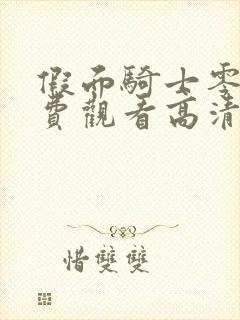 假而騎士零
費觀看高清
惜雙雙